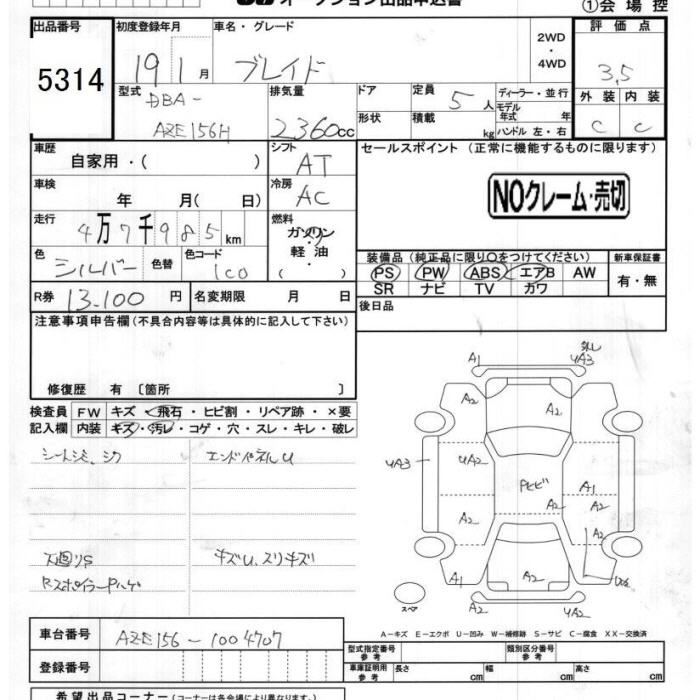 オークション出品申込書
①会場控
出品番号 初度登録年月 車名・グレード 2WD・4WD 評価点
5314 19 1月 ブレイド 3.5
型式 DBA-AZE156H 排気量 2360cc ドア 定員 5人 ディーラー・並行 外装 内装
形状 積載 kg モデル年式 年 ハンドル 左・右 C C
車歴 自家用・( ) シフト AT セールスポイント (正常に機能するものに限ります)
車検 年 月( 日) 冷房 AC NOクレーム・売切
走行 4万7千985km 燃料 ガソリン・軽油・( )
色 シルバー 色替 色コード 1C0 装備品 (純正品に限り〇をつけてください) 新車保証書
PS PW ABS エアB AW 有・無
SR ナビ TV カワ
R券 13,100円 名変期限 月 日 後日品
注意事項申告欄(不具合内容等は具体的に記入して下さい)
修復歴 有 〔箇所 〕
検査員 FW キズ・飛石・ヒビ割・リペア跡・×要
記入欄 内装 キズ・汚レ・コゲ・穴・スレ・キレ・破レ
シートシミ、シワ エンドパネルU
下回りS キズU、スリキズ
RスポイラーPハゲ
A1 UA3
A2 A2
UA3 UA2 Pヒビ A1 A2
A2 A2
A2
A1 A2
A2 UA2
スペア
A-キズ E-エクボ U-凹み W-補修跡 S-サビ C-腐食 XX-交換済
車台番号 AZE156-1004707
型式指定番号 参考 類別区分番号 参考
登録番号 車庫証明用 参考 長さ cm 幅 cm 高さ cm
希望出品コーナー(コーナー名は各会場により異なります。)